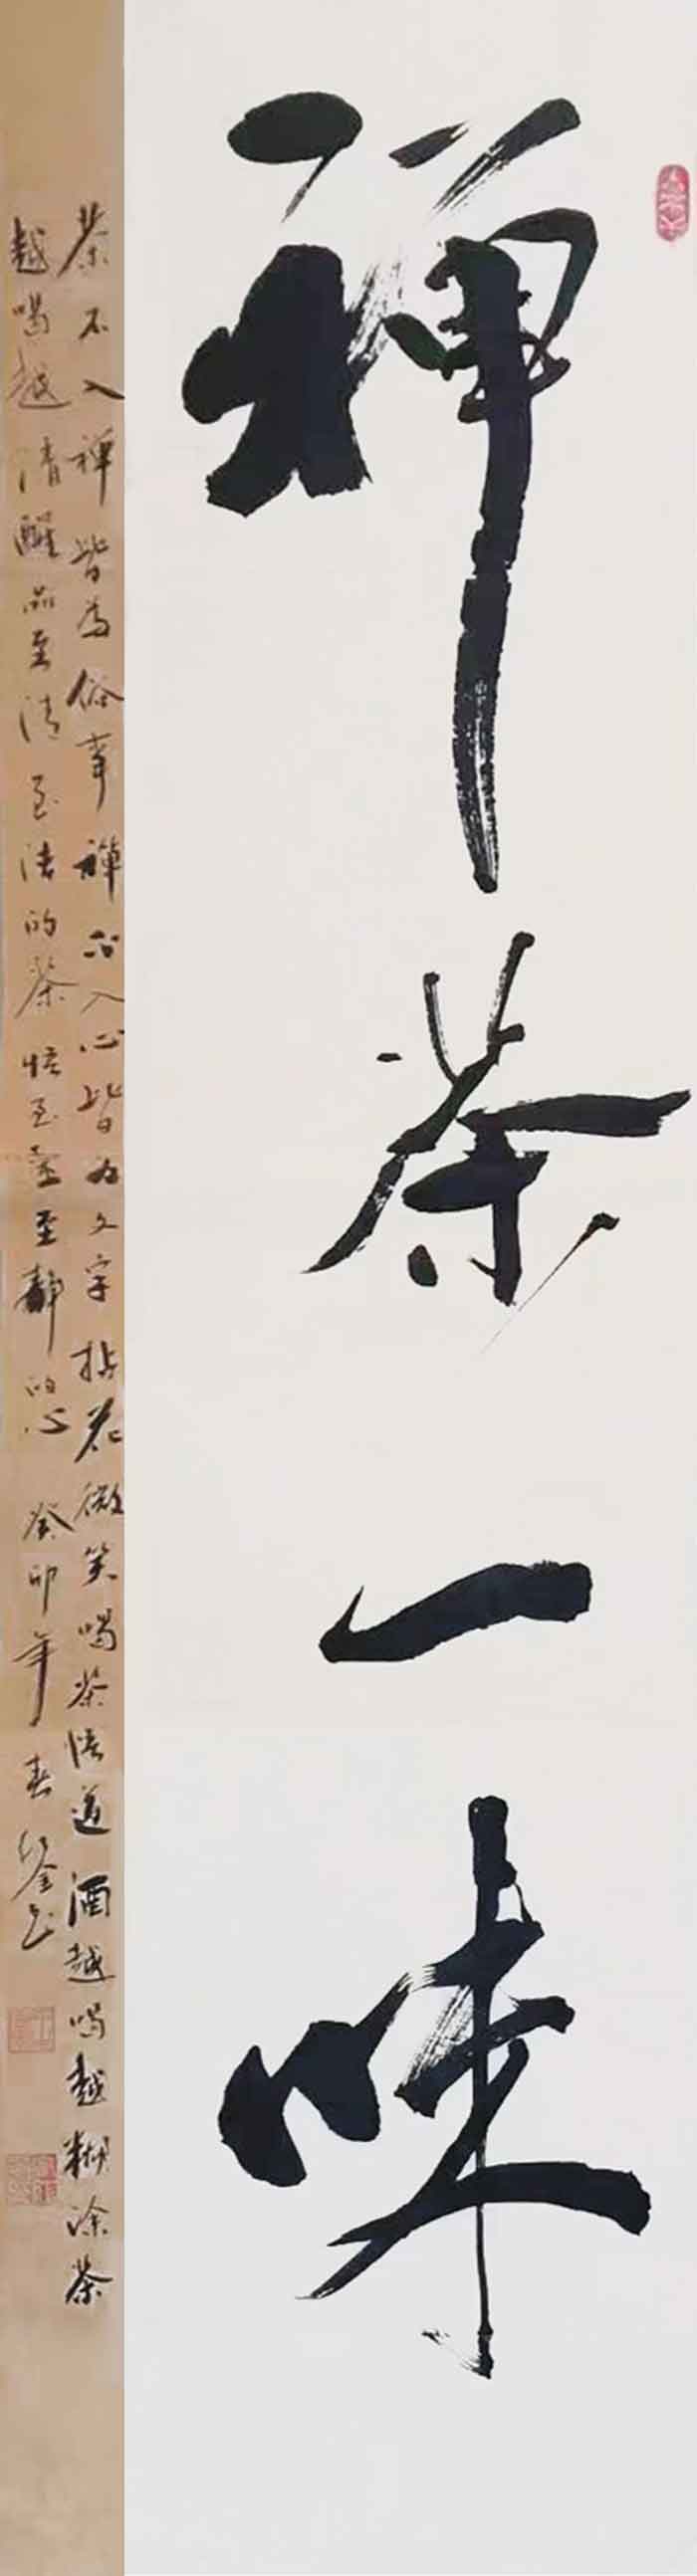 禅茶一味
茶不入禅皆为俗事禅不入心皆为文字拈花微笑喝茶悟道酒越喝越糊涂茶
越喝越清醒品至清至洁的茶悟至空至静的心 癸卯年春